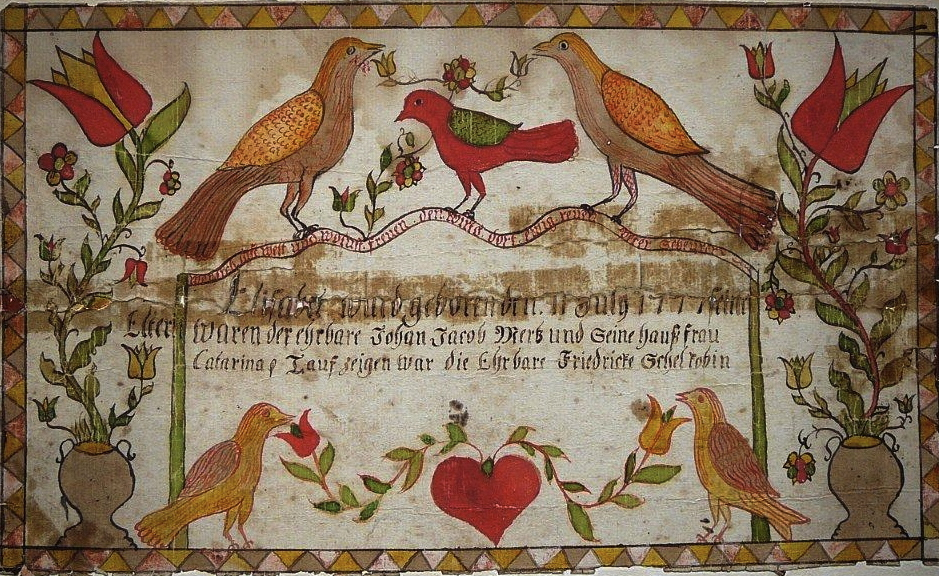 den wird dort ewig
Elisabet ward geboren den 11 July 1777 seine
Eltern waren der ehrbare Johan Jacob Mertz und Seine hauß frau
Catarina Tauf zeigen war die Ehrbare Friedricke Schelkobin